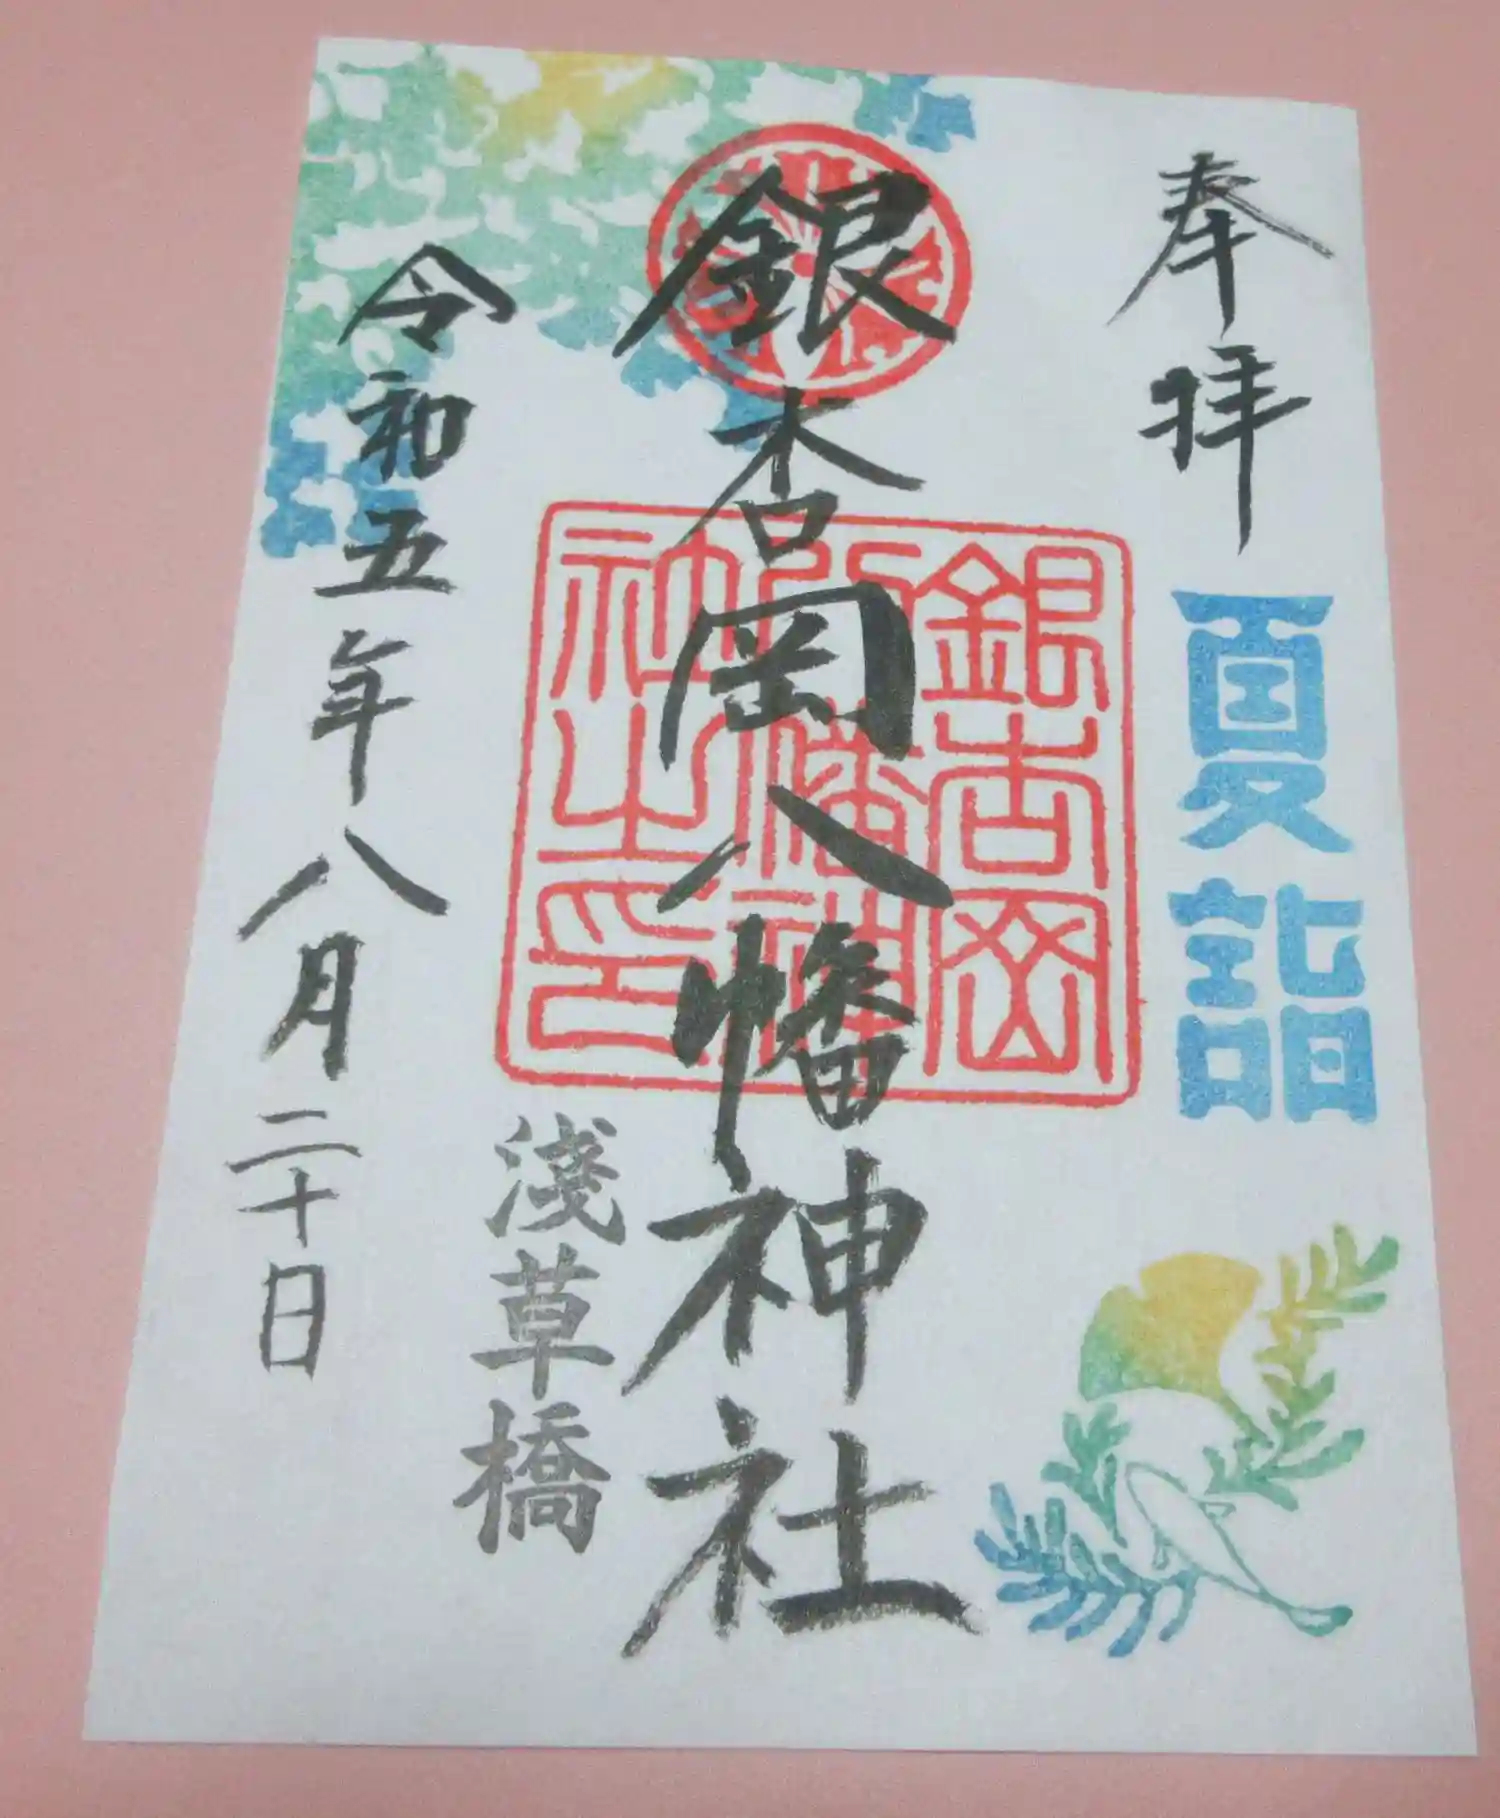 奉拝
夏詣
銀杏岡八幡神社
銀杏岡
八幡神
社之印
淺草橋
令和五年八月二十日